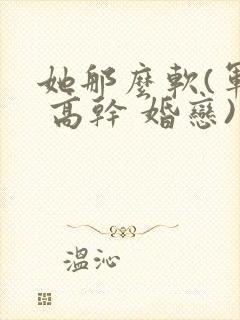 她那麼軟(軍
高幹 婚戀)
溫沁